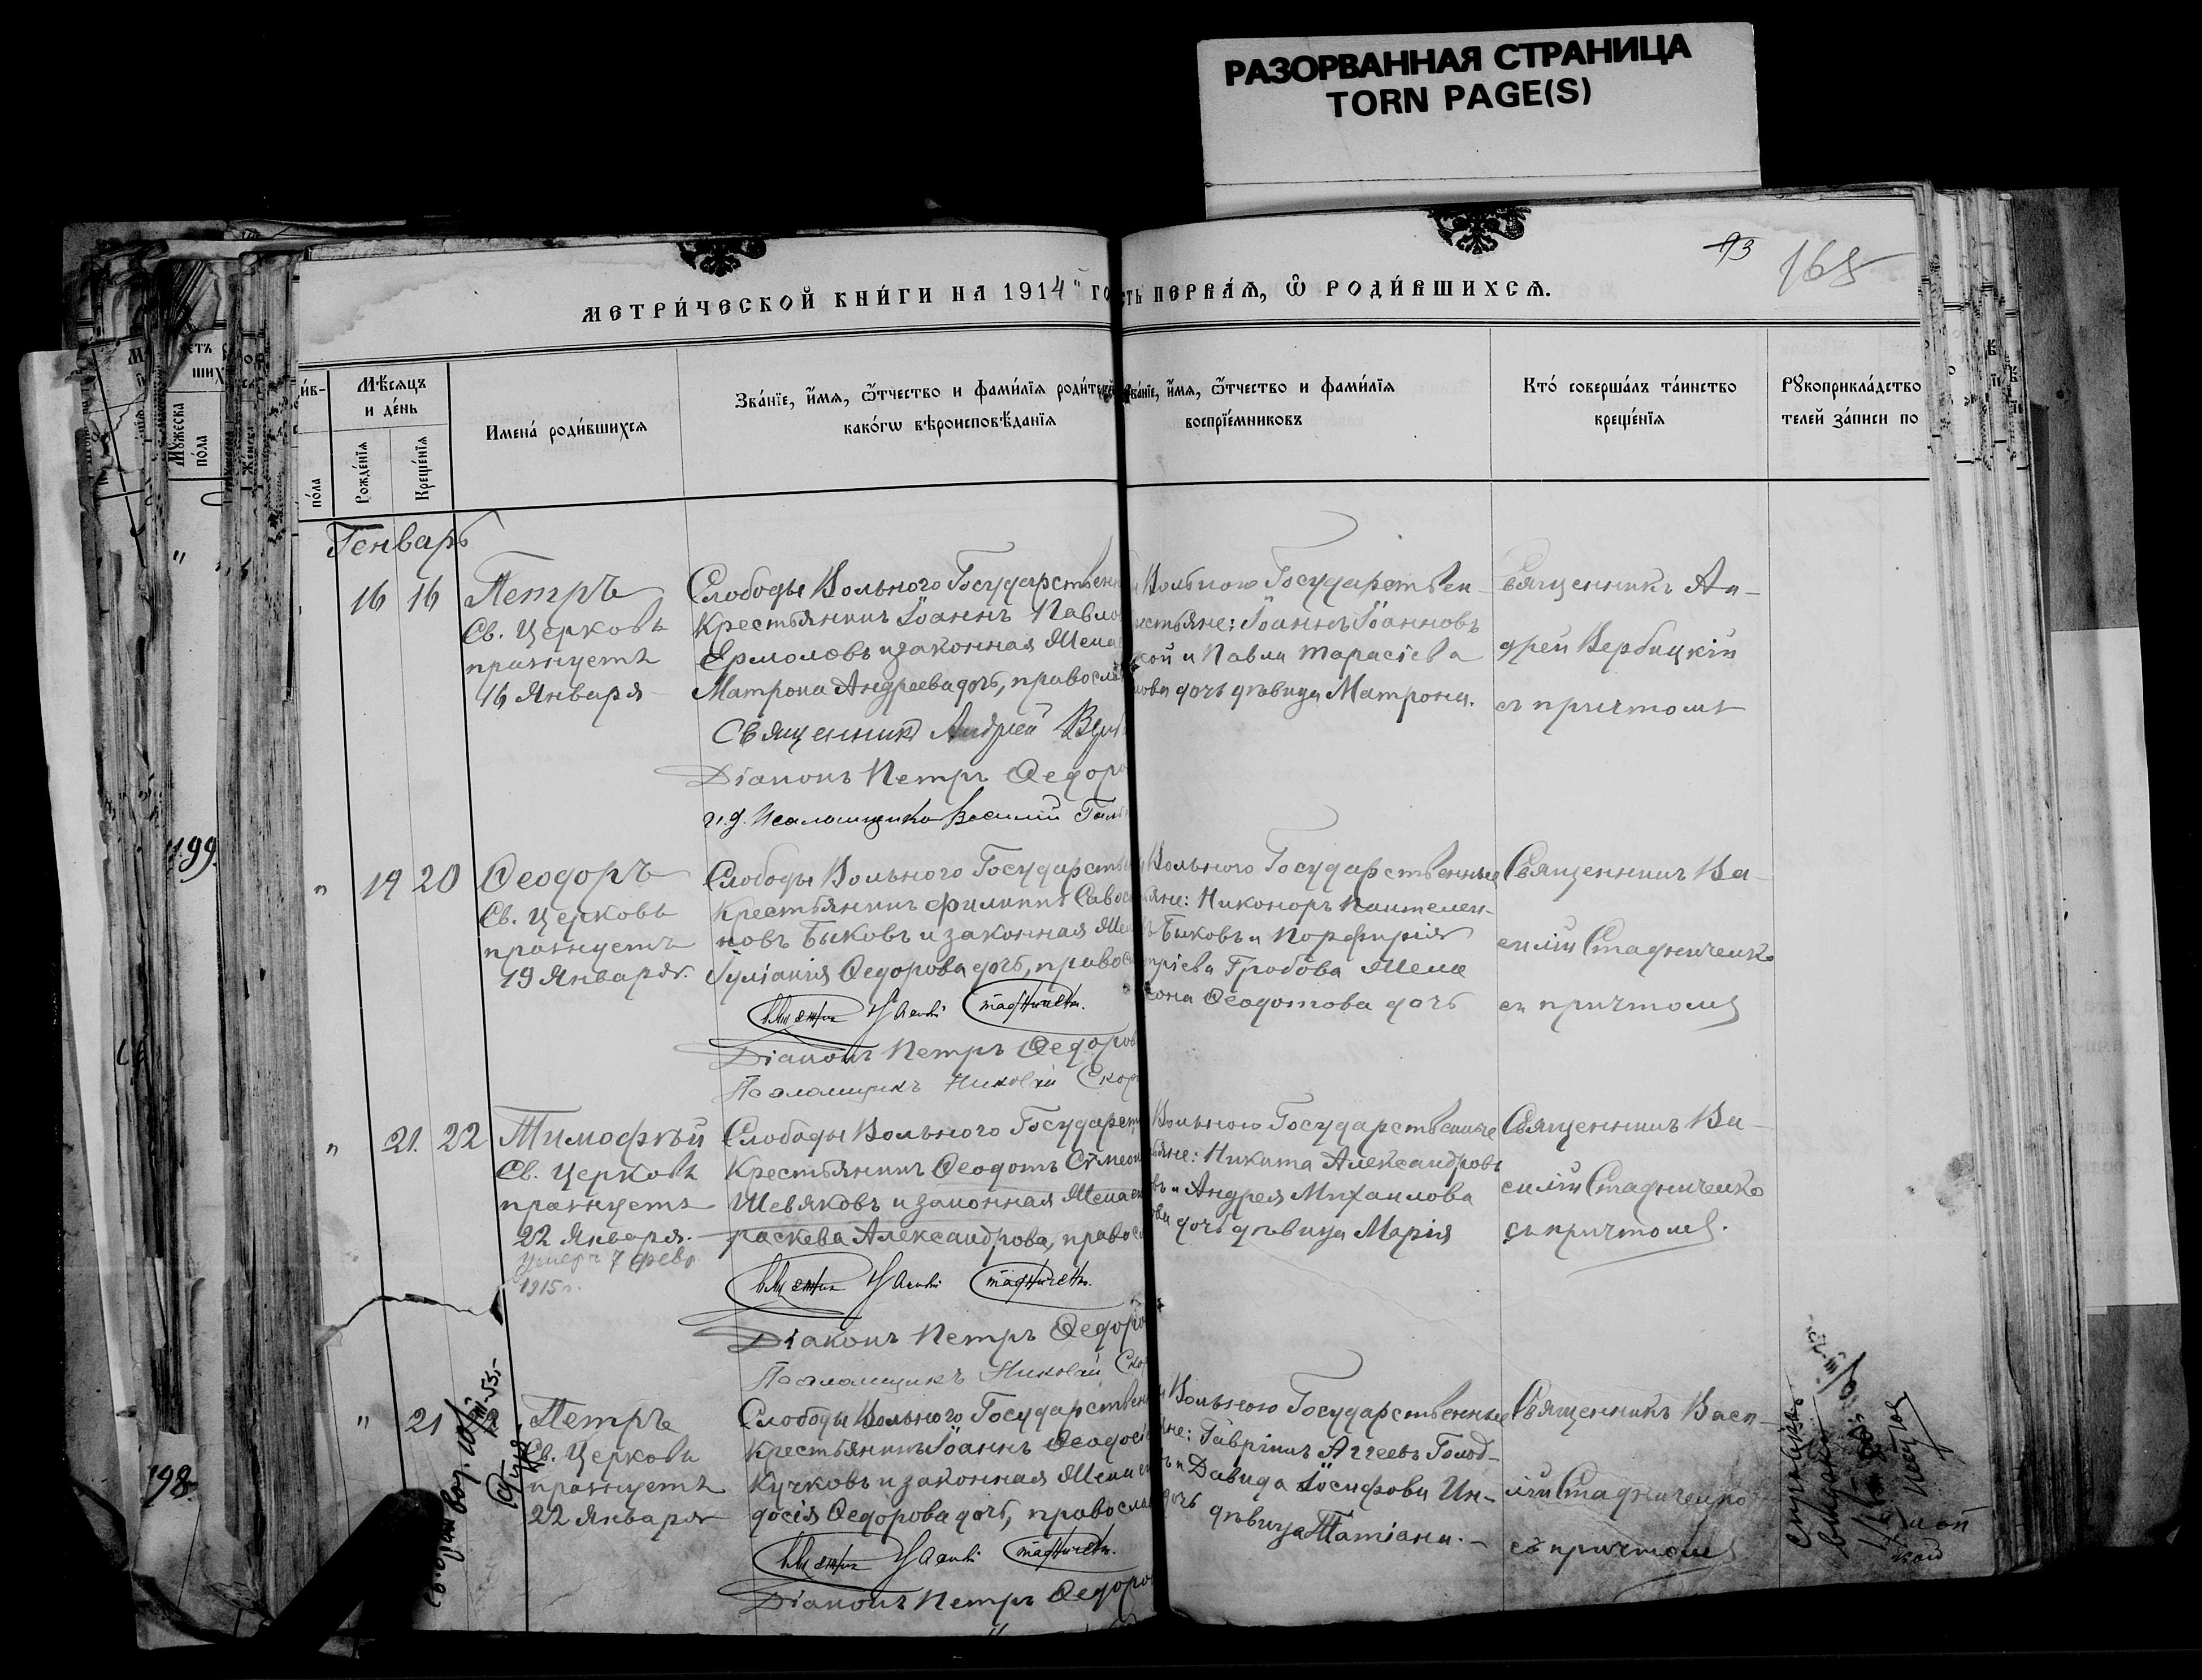 РАЗОРВАННАЯ СТРАНИЦА
TORN PAGE(S)
93
168
МЕТРИ́ЧЕСКОЙ КНИ́ГИ НА 1914 ГО
СТЬ ПЕРВА́Я, Ѿ РОДИ́ВШИХСЯ.
Мѣ́сяцъ
и де́нь
Рожде́нїя
Креще́нїя
по́ла
Имена́ роди́вшихся
Зва́нїе, и́мя, ѻ́тчество и фами́лїя роди́телей
како́гѡ вѣроисповѣ́данїя
Зва́нїе, и́мя, ѻ́тчество и фами́лїя
воспрїе́мниковъ
Кто́ соверша́лъ та́инство
креще́нїя
Рꙋкоприкла́дство
телей за́писи по
Генварь
16 16 Петръ
Св. Церковь
празнуетъ
16 Января
Слободы Вольного Государствен
Крестьянинъ Іоаннъ Павло
Ермоловъ и законная Жена
Матрона Андреева дочь, правосла
Священникъ Андрей Верб
Діаконъ Петръ Ѳедоро
и.д. Псаломщика Василий
Вольного Государствен-
естьяне: Іоаннъ Іоанновъ
кой и Павла Тарасіева
лова дочь дѣвица Матрона.
Священникъ Ан-
дрей Вербицкій
съ причтомъ
" 19 20 Ѳеодоръ
Св. Церковь
празнуетъ
19 Января.
Слободы Вольного Государств
Крестьянинъ Филиппъ Савос
новъ Быковъ и законная Жен
Іуліанія Ѳедорова дочь, правос
Діаконъ Петръ Ѳедоров
Псаломщикъ Николай Скор
Вольного Государственные
яне: Никоноръ Пантелеи-
Быковъ и Порфирія
трієва Гробова Жена
Ѳеодотова дочь
Священникъ Ва-
силій Стадниченко
съ причтомъ
" 21. 22 Тимофѣй
Св. Церковь
празнуетъ
22 Января.
умеръ 7 февр.
1915 г.
Слободы Вольного Государст
Крестьянинъ Ѳеодотъ Сѵмеон
Шевяковъ и законная Жена е
раскева Александрова, правос
Діаконъ Петръ Ѳедоро
Псаломщикъ Николай Ско
Вольного Государственные
яне: Никита Александровъ
въ и Андрея Михаилова
ова дочь дѣвица Марія
Священникъ Ва-
силій Стадниченко
съ причтомъ.
" 21 Петръ
Св. Церковь
празнуетъ
22 Января
Слободы Вольного Государствен
Крестьянинъ Іоаннъ Ѳеодосі
Кучковъ и законная Жена е
досія Ѳедорова дочь, правосла
Діаконъ Петръ Ѳедоро
Вольного Государственные
яне: Гавріилъ Аггеевъ Голод-
и Давида Іосифова Ин-
дочь дѣвица Татіана. -
Священникъ Васи-
лій Стадниченко
съ причтомъ
199.
198.